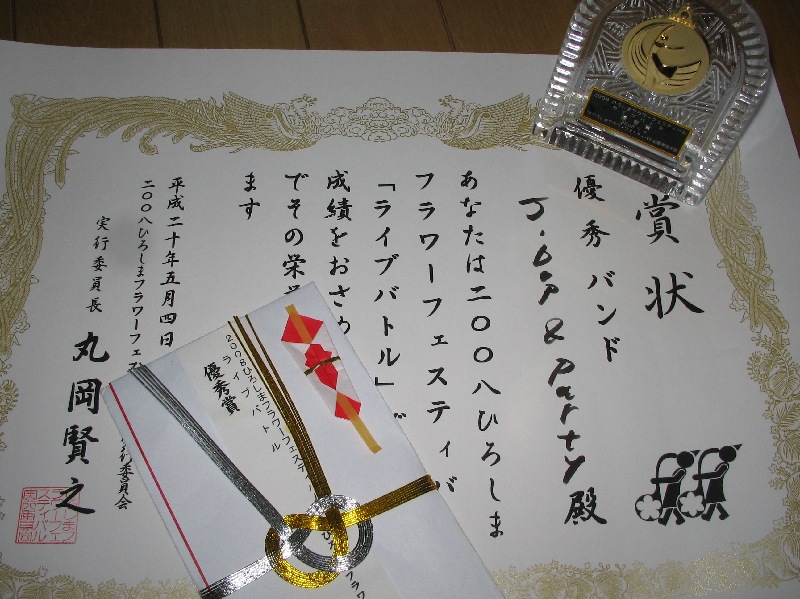 賞状
優秀バンド
J.bop & party殿
あなたは二〇〇八ひろしま
フラワーフェスティバ
「ライブバトル」で
成績をおさめ
でその栄誉
ます
平成二十年五月四日
二〇〇八ひろしまフラワーフェス
行委員会
実行委員長 丸岡賢之
優秀賞
2008ひろしまフラワーフェスティバル
ライブバトル